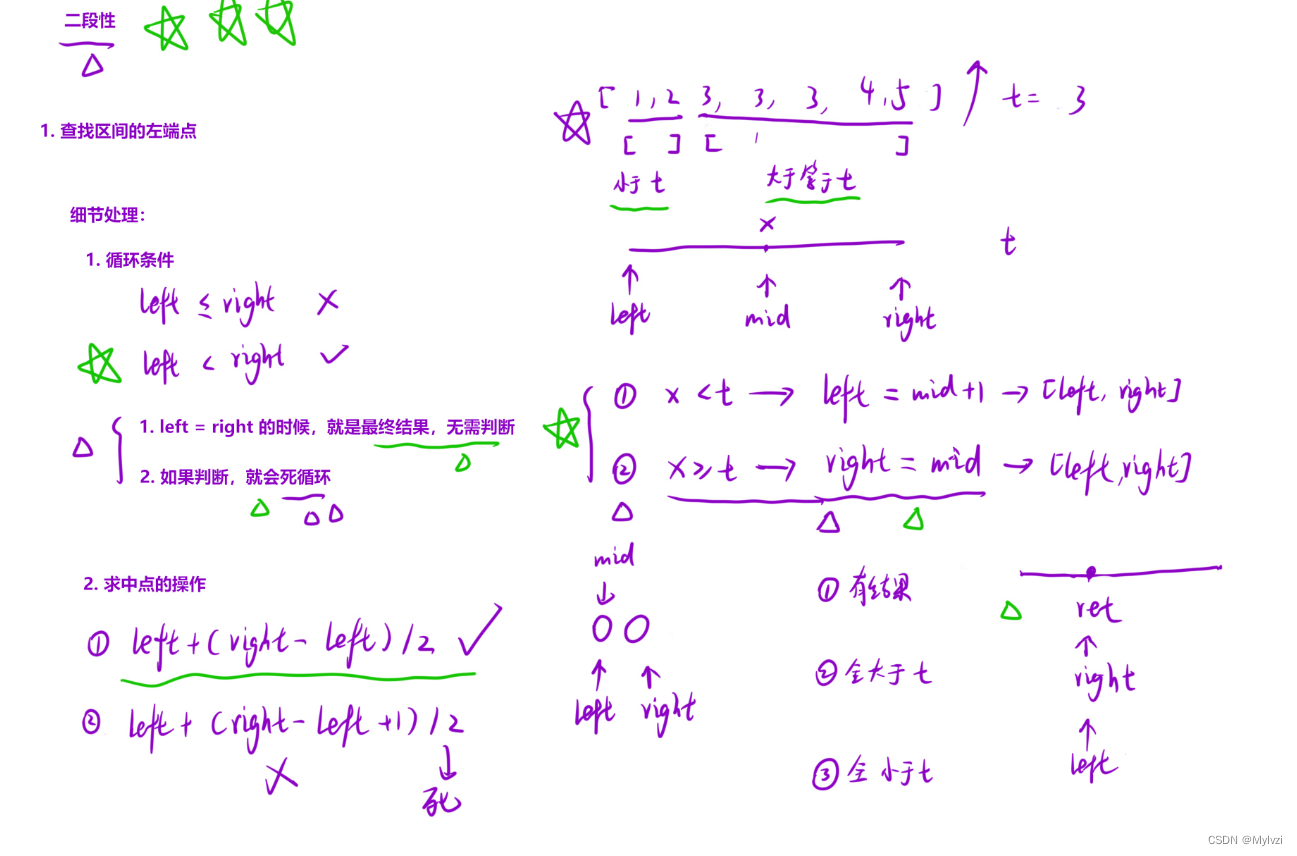 二段性
1. 查找区间的左端点
细节处理：
1. 循环条件
left ≤ right ×
left < right ✓
1. left = right 的时候，就是最终结果，无需判断
2. 如果判断，就会死循环
2. 求中点的操作
① left+(right-left)/2 ✓
② left+(right-left+1)/2
×
死
[1,2 3, 3, 3, 4,5] t= 3
[ ] [ ]
小于t 大于等于t
x
t
left mid right
① x<t → left = mid+1 → [left, right]
② x≥t → right = mid → [left,right]
mid
left right
① 有结果
② 全大于t
③ 全小于t
ret
right
left
CSDN @Mylvzi